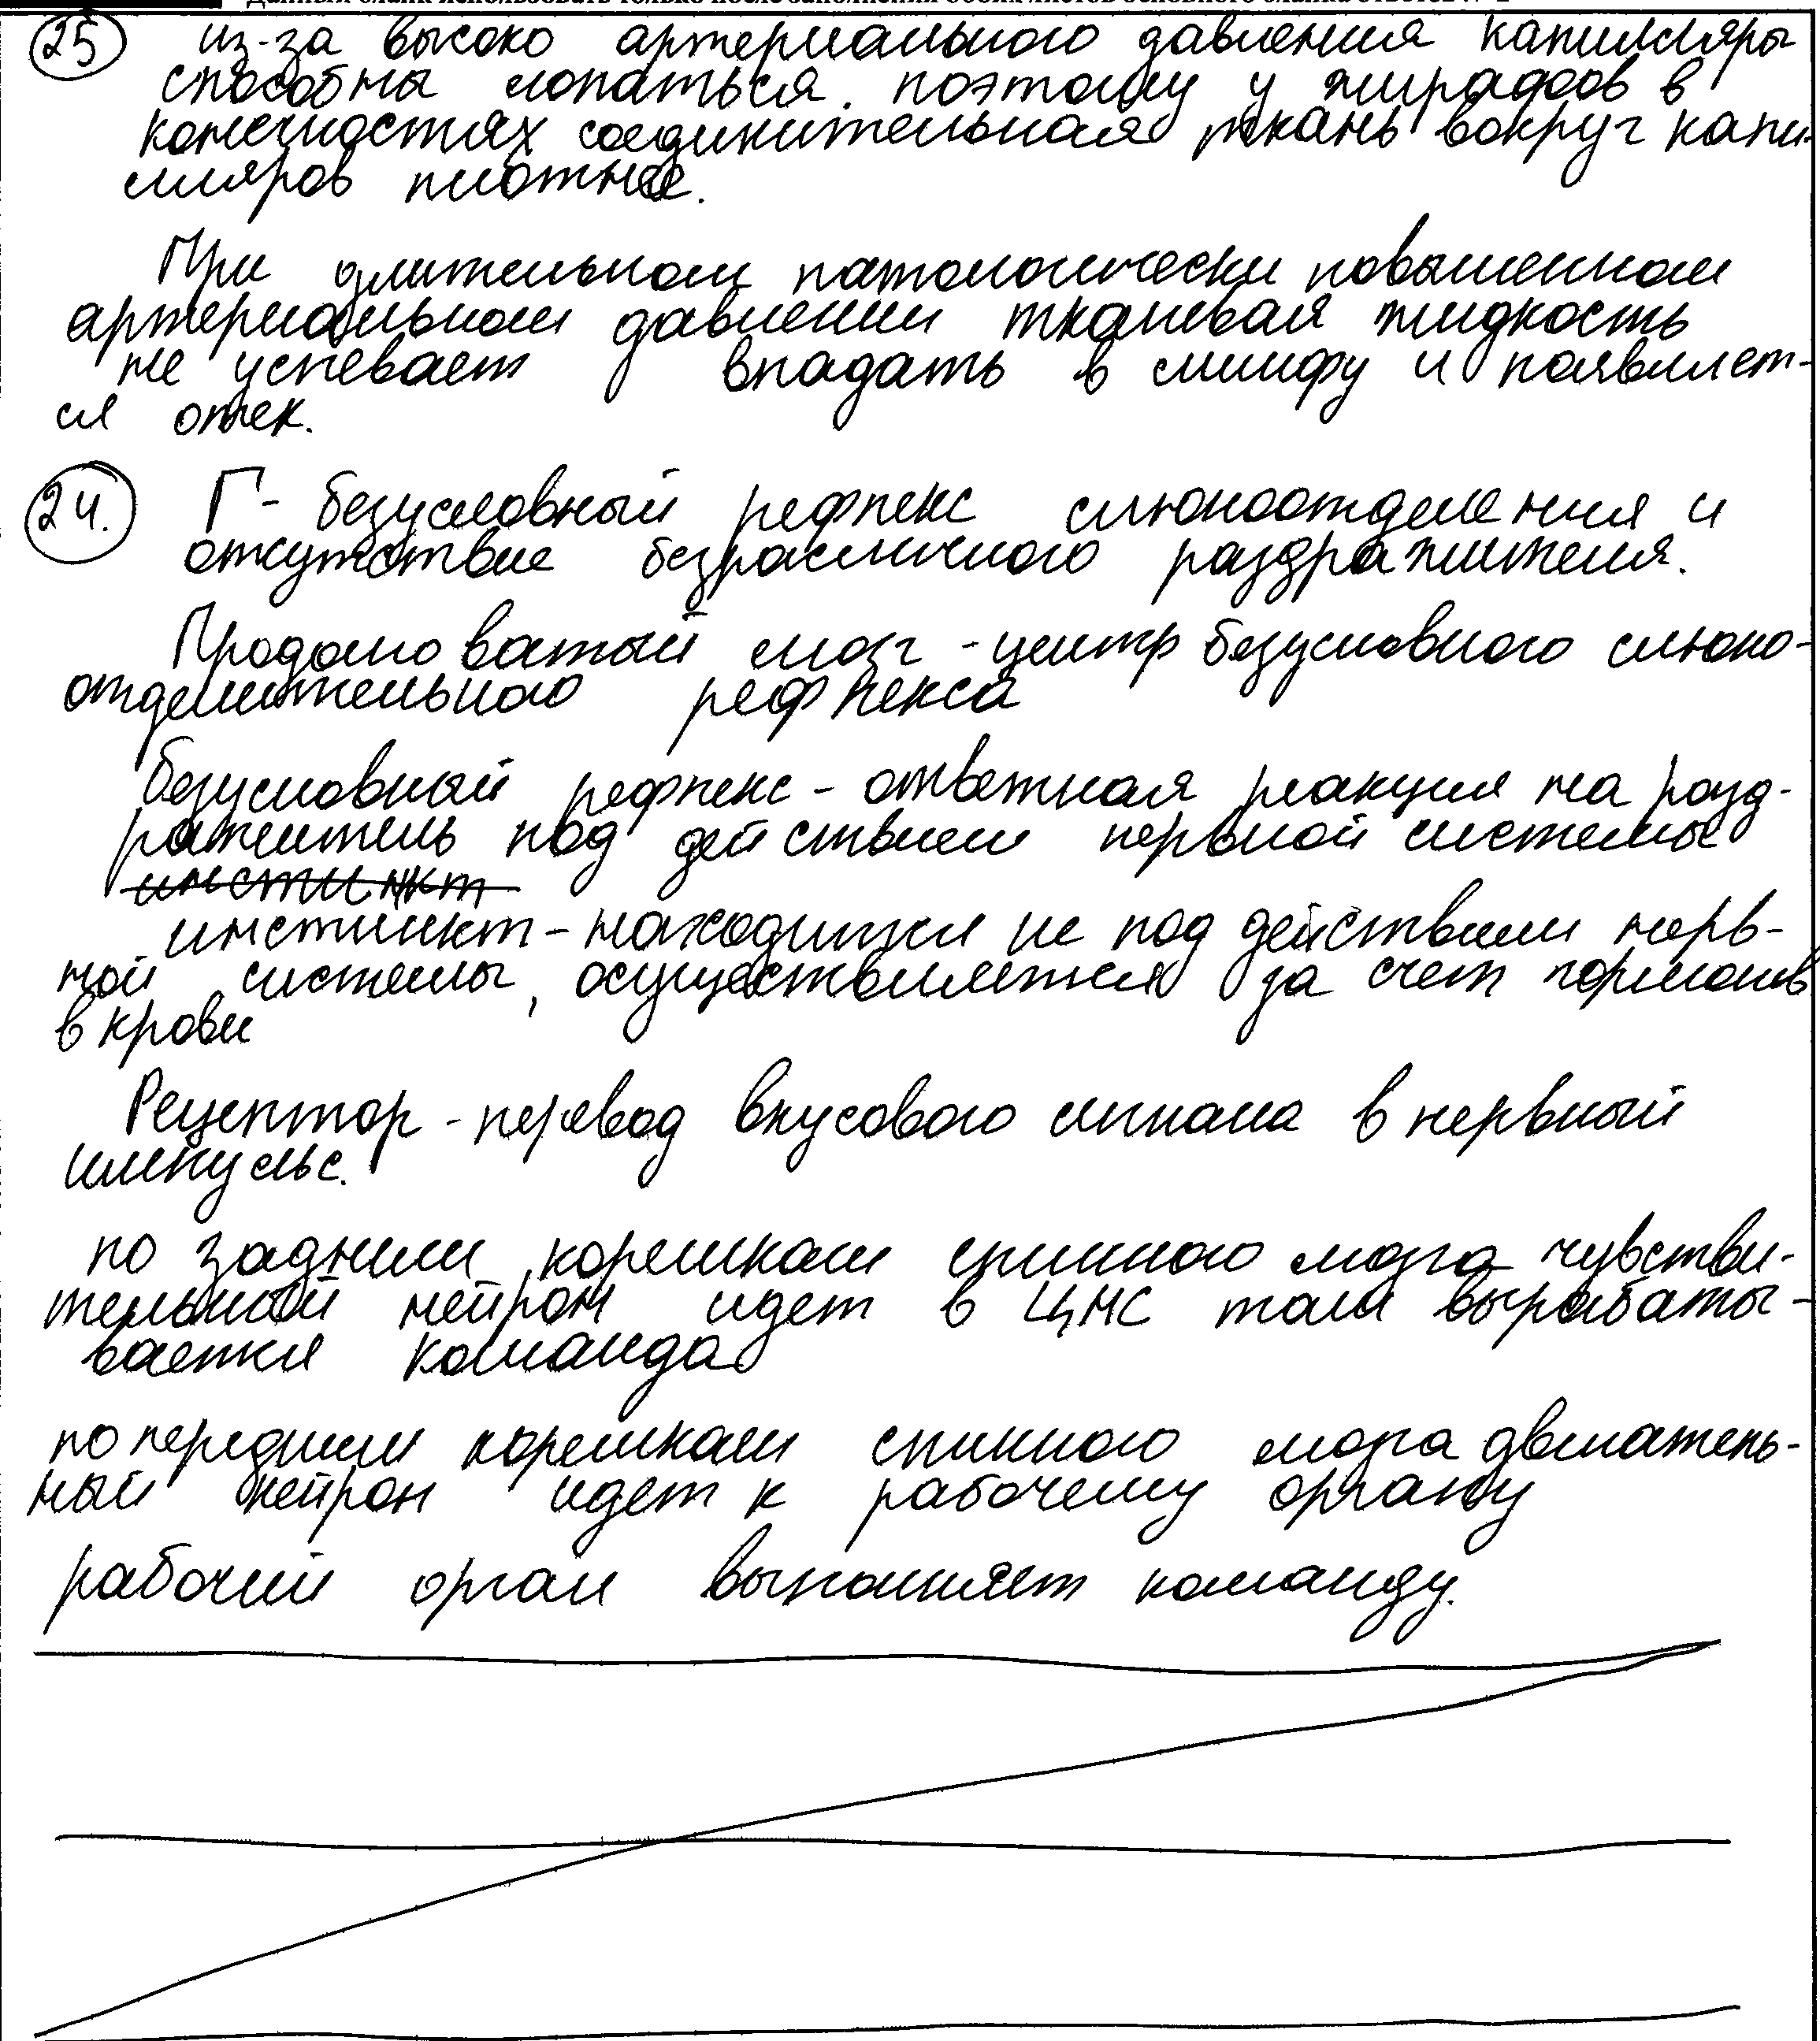 25 из-за высоко артериального давления капилляры
способны лопаться. поэтому у жирафов в
конечностях соединительная ткань вокруг капи-
лляров плотнее.
При длительном патологически повышенном
артериальном давлении тканевая жидкость
не успевает впадать в лимфу и появляет-
ся отек.
24. Г - безусловный рефлекс слюноотделения и
отсутствие безразличного раздражителя.
Продолговатый мозг - центр безусловного слюно-
отделительного рефлекса
безусловный рефлекс - ответная реакция на розд-
ражитель под действием нервной системы
инстинкт
инстинкт - находится не под действием нерв-
ной системы, осуществляется за счет гормонов
в крови
Рецептор - перевод вкусового сигнала в нервный
импульс.
по задним корешкам спинного мозга чувстви-
тельный нейрон идет в ЦНС там вырабаты-
вается команда
по передним корешкам спинного мозга двигатель-
ный нейрон идет к рабочему органу
рабочий орган выполняет команду.